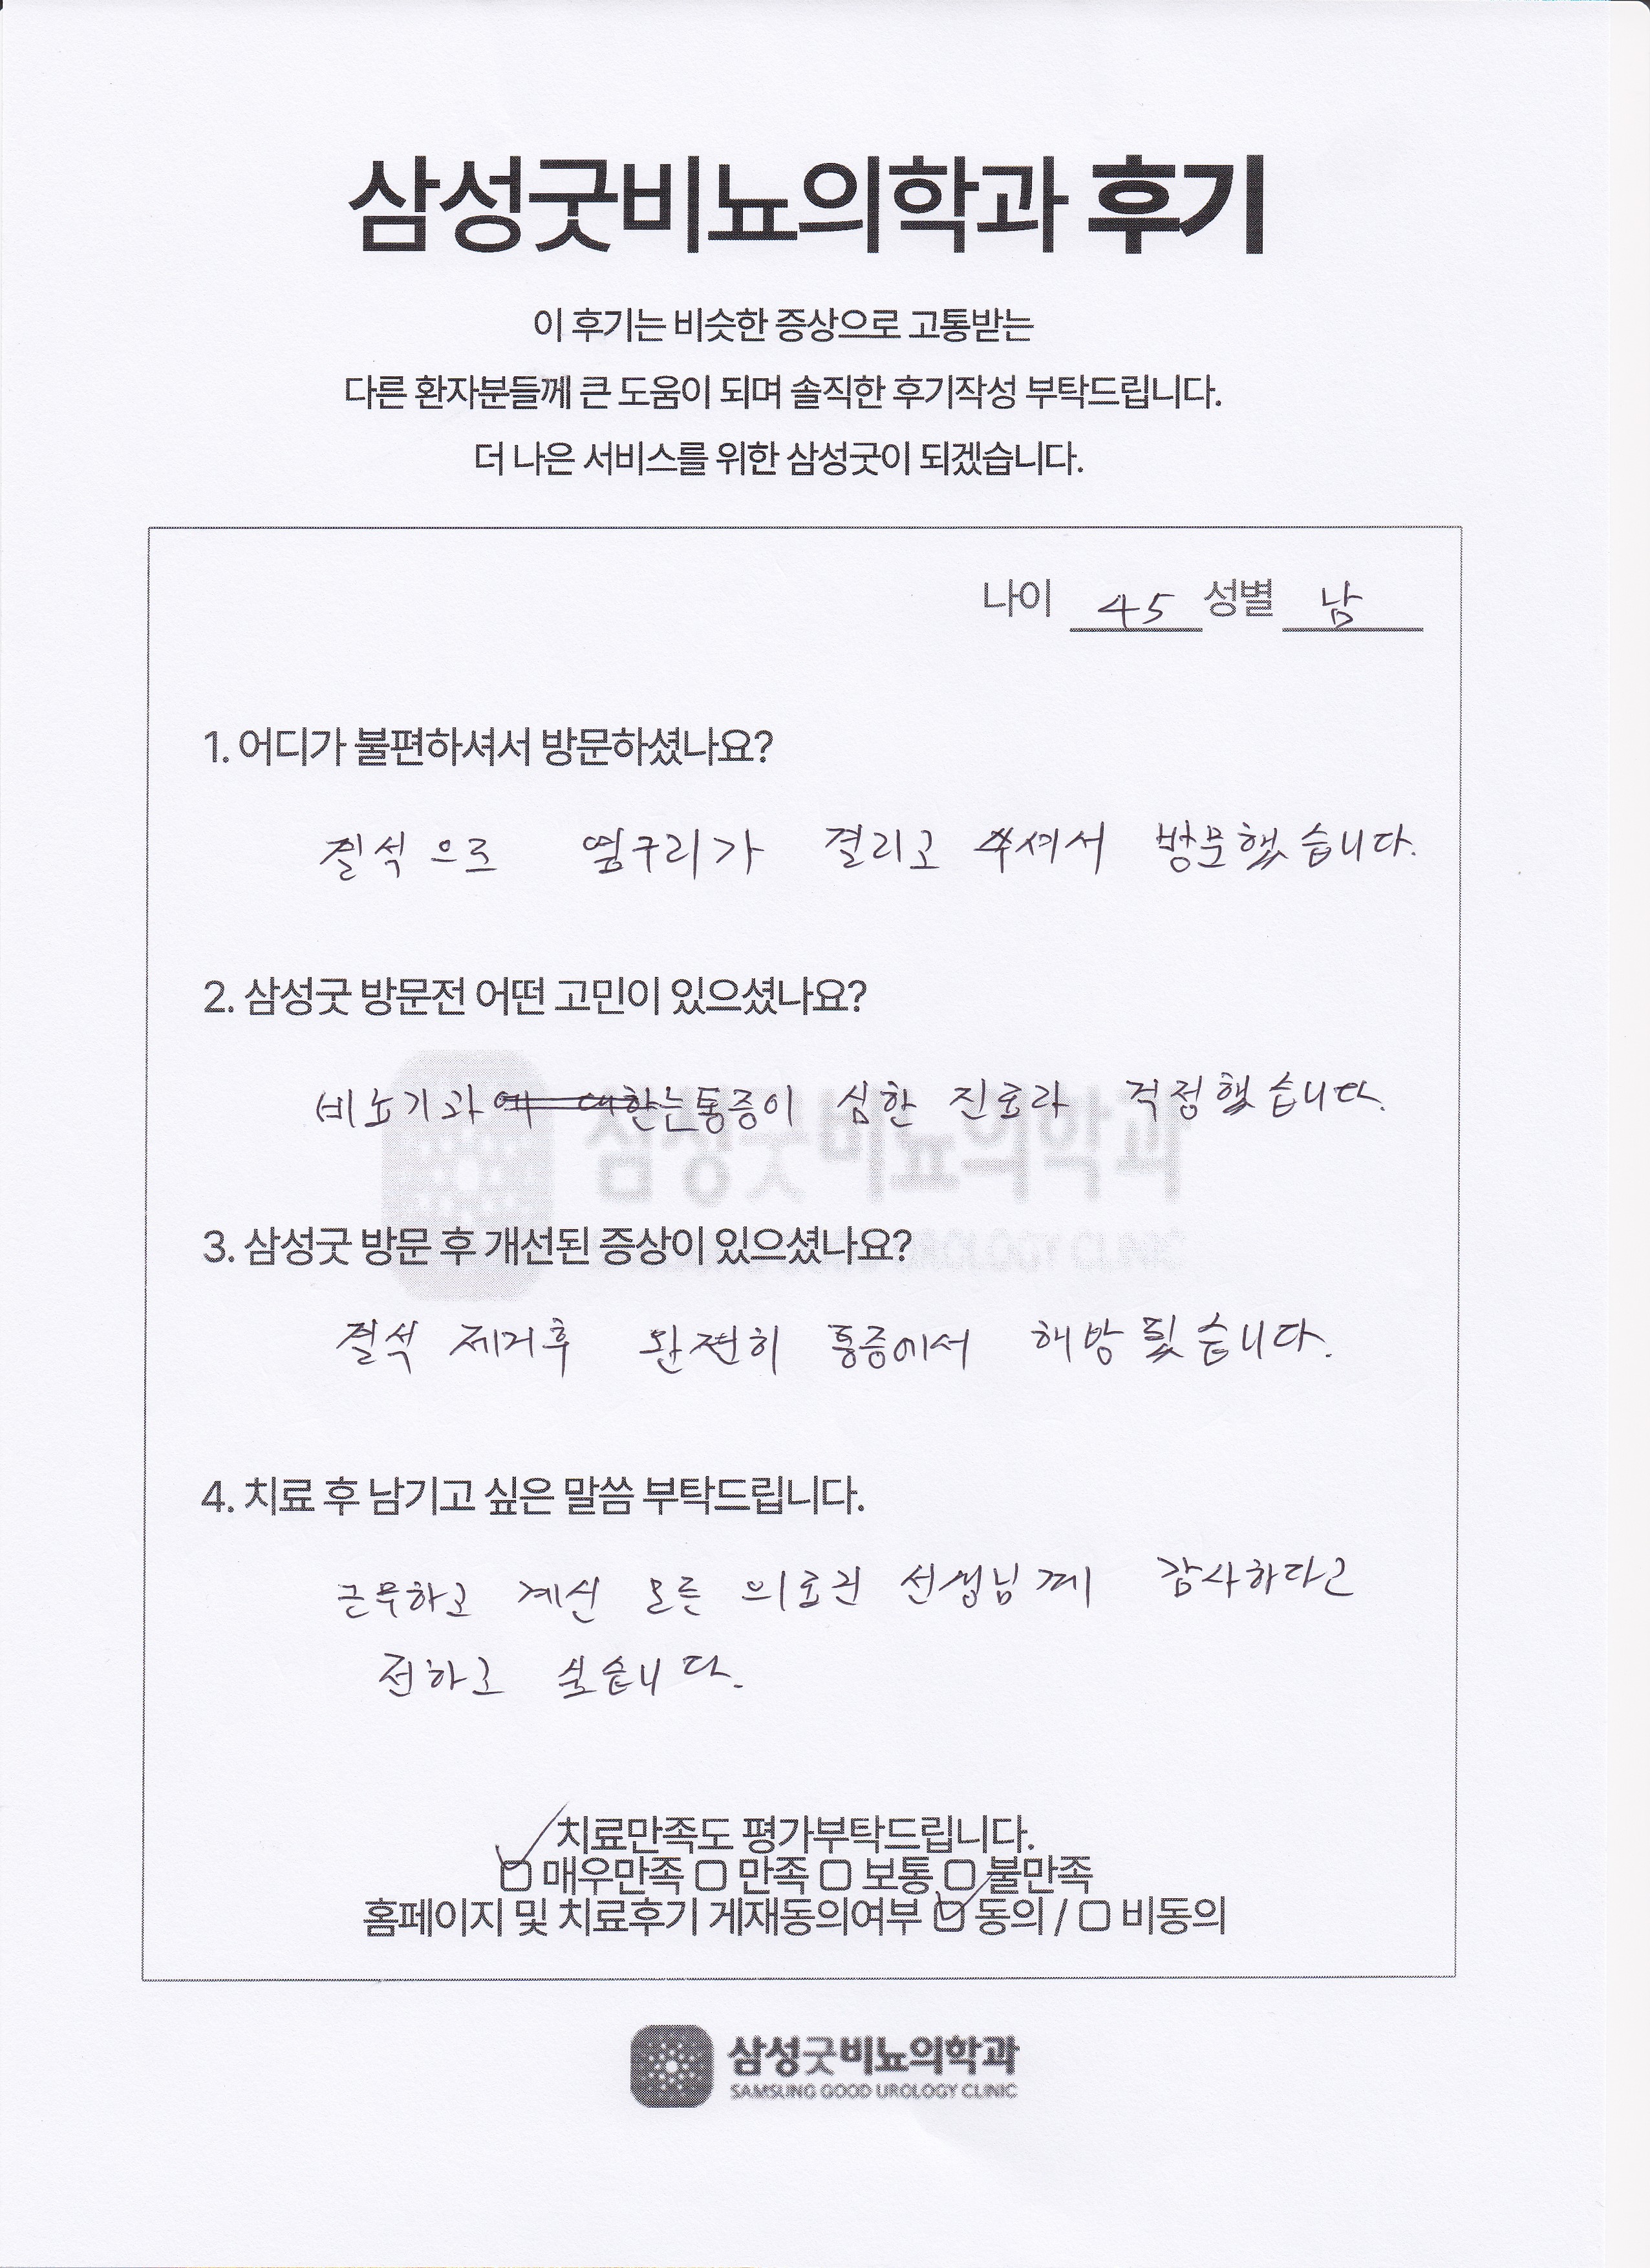 삼성굿비뇨의학과 후기
이 후기는 비슷한 증상으로 고통받는
다른 환자분들께 큰 도움이 되며 솔직한 후기작성 부탁드립니다.
더 나은 서비스를 위한 삼성굿이 되겠습니다.
나이 45 성별 남
1. 어디가 불편하셔서 방문하셨나요?
결석으로 옆구리가 결리고 쑤셔서 방문했습니다.
2. 삼성굿 방문전 어떤 고민이 있으셨나요?
비뇨기과는 통증이 심한 진료라 걱정했습니다.
삼성굿비뇨의학과
UROLOGY CLINIC
3. 삼성굿 방문 후 개선된 증상이 있으셨나요?
결석 제거후 완전히 통증에서 해방됬습니다.
4. 치료 후 남기고 싶은 말씀 부탁드립니다.
근무하고 계신 모든 의료진 선생님께 감사하다고
전하고 싶습니다.
치료만족도 평가부탁드립니다.
매우만족 만족 보통 불만족
홈페이지 및 치료후기 게재동의여부 동의 / 비동의
삼성굿비뇨의학과
SAMSUNG GOOD UROLOGY CLINIC